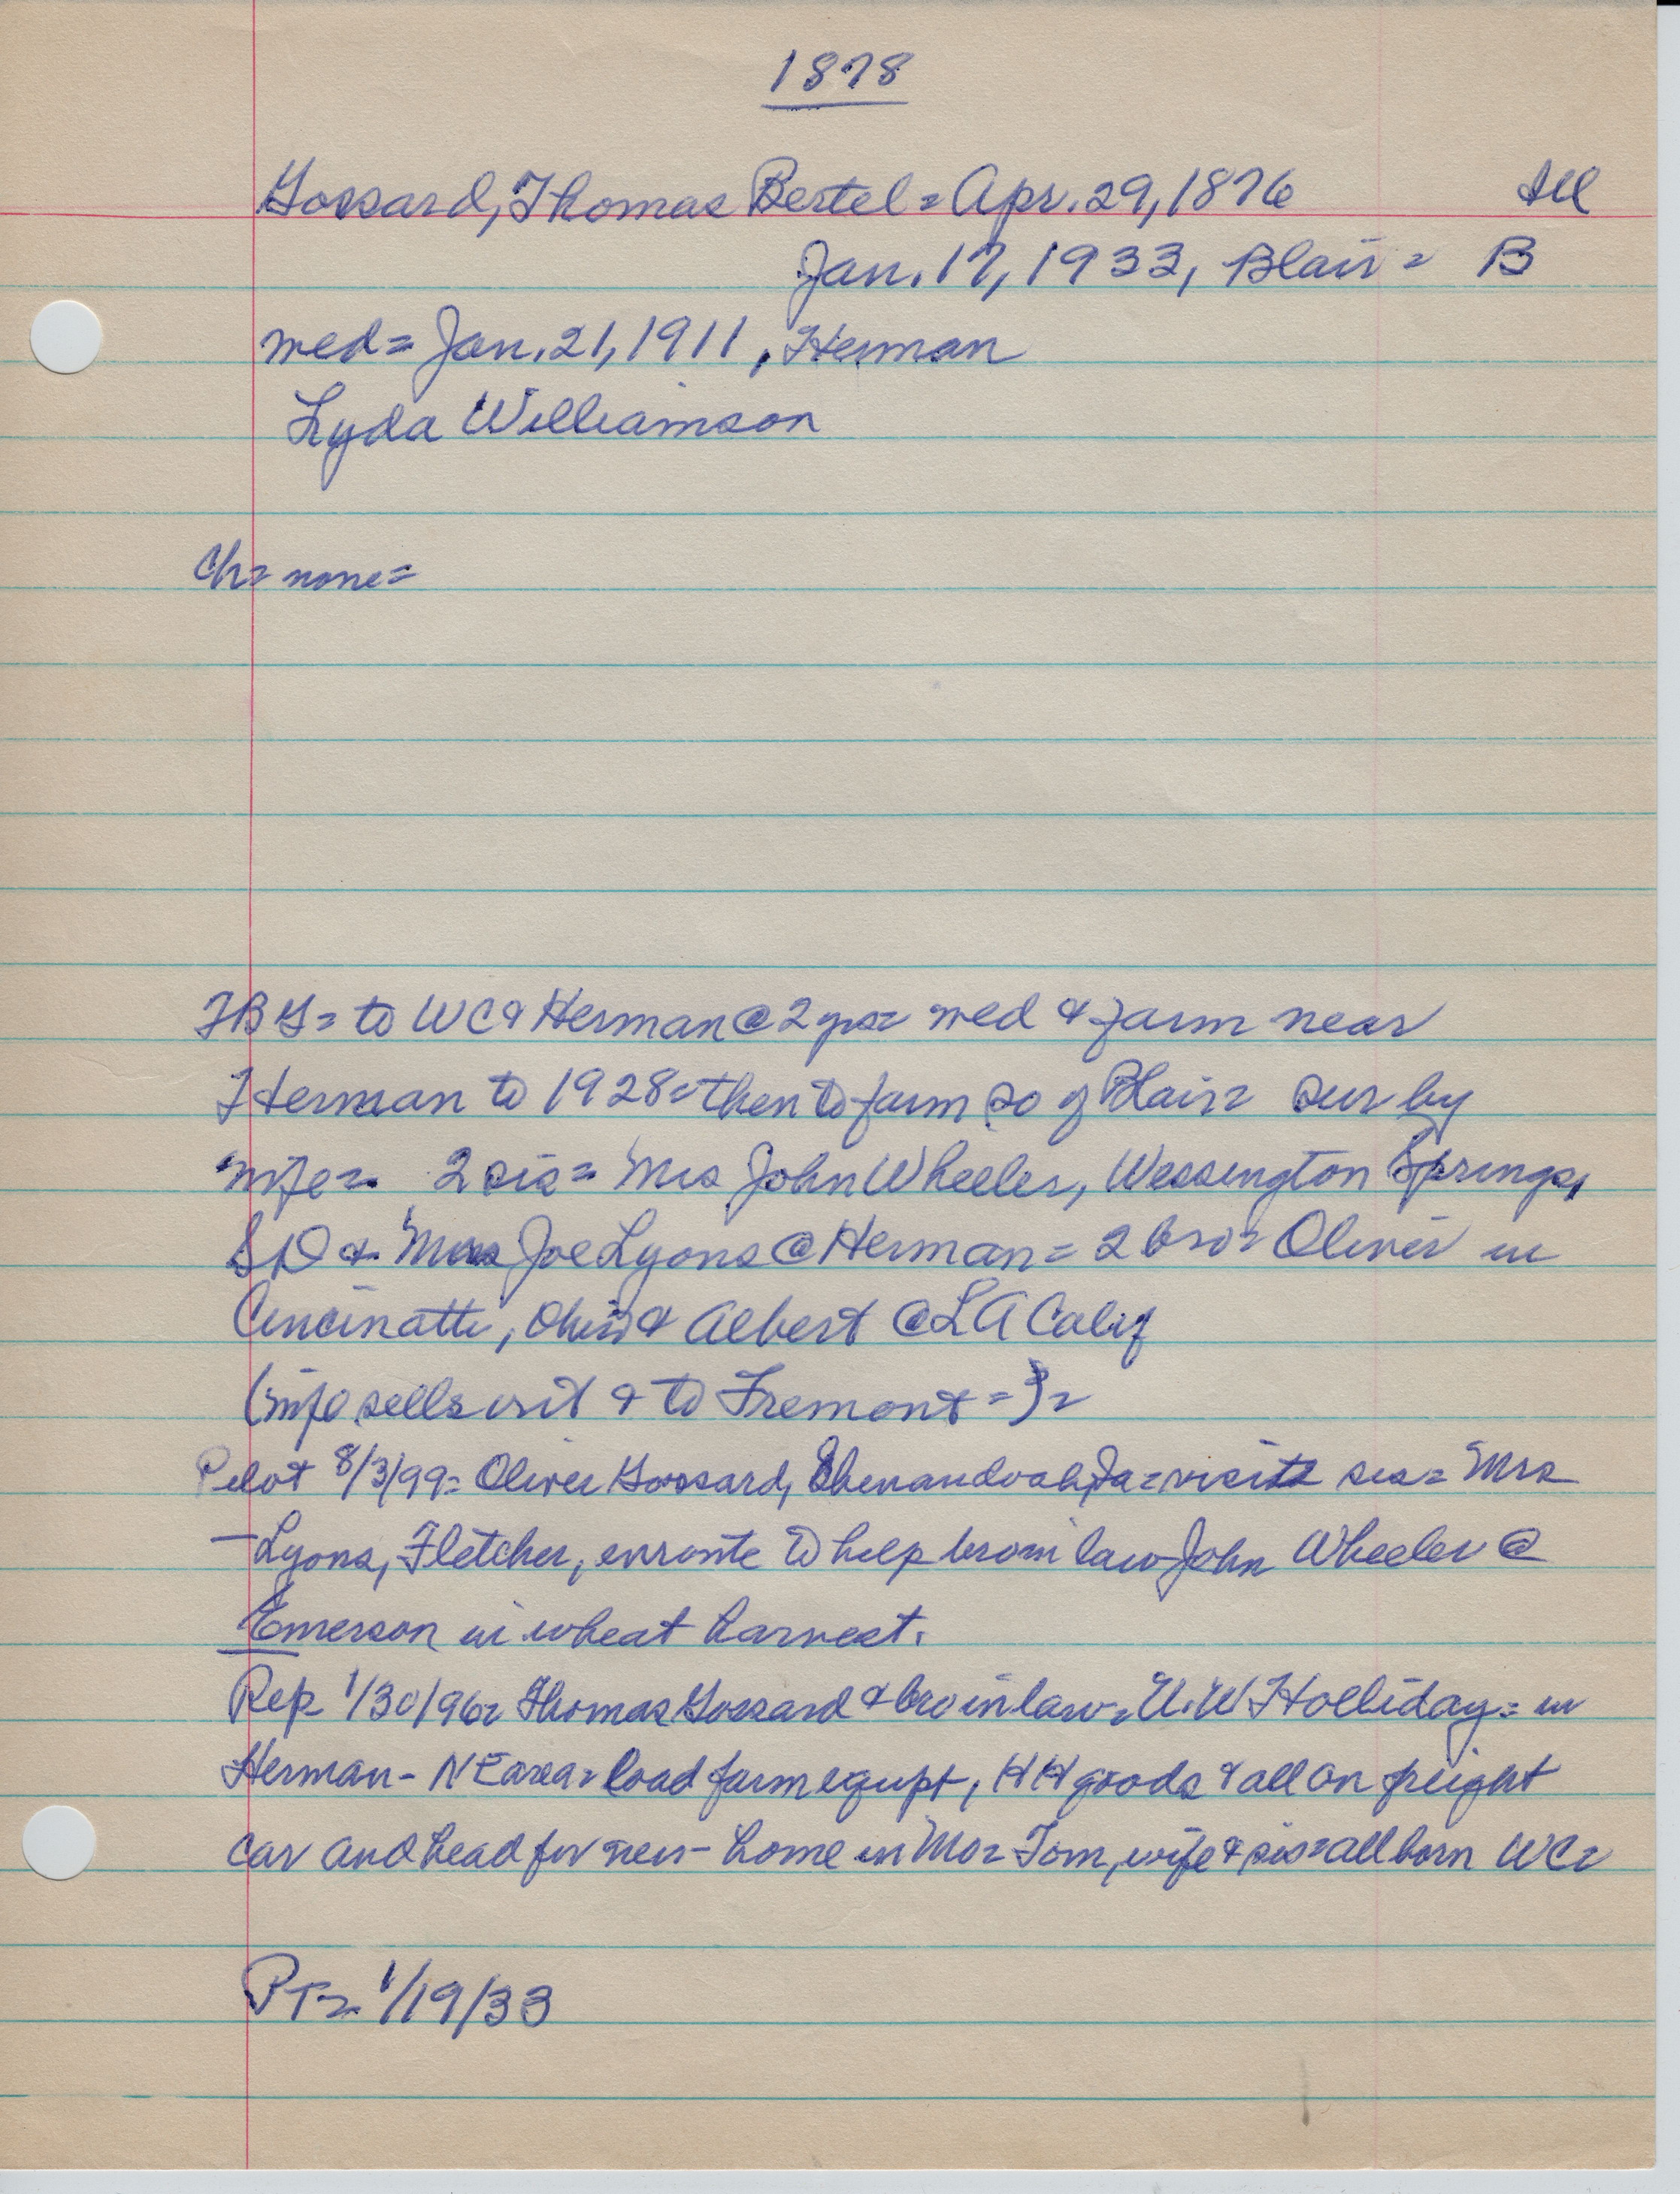 1878
Gossard, Thomas Bertel = Apr. 29, 1876 Ill
Jan. 17, 1933, Blair = B
med = Jan. 21, 1911, Herman
Lyda Williamson
Ch = none =
TBG = to WC & Herman @ 2 yrs = med & farm near
Herman to 1928 = then to farm so of Blair = sur by
wife = 2 sis = Mrs John Wheeler, Wessington Springs,
SD & Mrs Joe Lyons @ Herman = 2 bro = Oliver in
Cincinatti, Ohio & Albert @ LA Calif
(wife sells out & to Fremont =) =
Pilot 8/3/99 = Oliver Gossard, Shenandoah, Ia = visits sis = Mrs
- Lyons, Fletcher, enroute to help bro in law John Wheeler @
Emerson in wheat harvest.
Rep 1/30/96 = Thomas Gossard & bro in law = U.W Holliday = in
Herman - NE area = load farm equpt, HH goods & all on freight
car and head for new - home in Mo = Tom, wife & sis = all born WC =
PT = 1/19/33